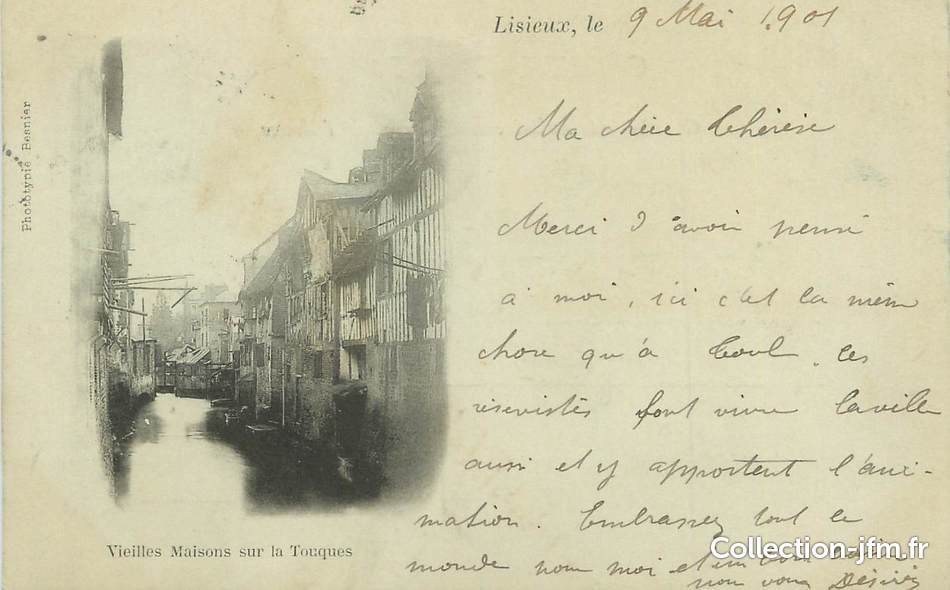 Lisieux, le 9 Mai 1901
Phototypie Besnier
Ma chère Thérèse
Merci d'avoir pensé
à moi, ici c'est la mêm
chose qu'à Toul, les
réservistes font vivre la ville
aussi et y apportent l'ani-
mation. Embrassez tout le
monde pour moi et un bon
pour vous Désirée
Vieilles Maisons sur la Touques
Collection-jfm.fr